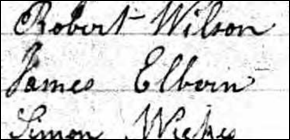 Robert Wilson
James Elborn
Simon Wickes